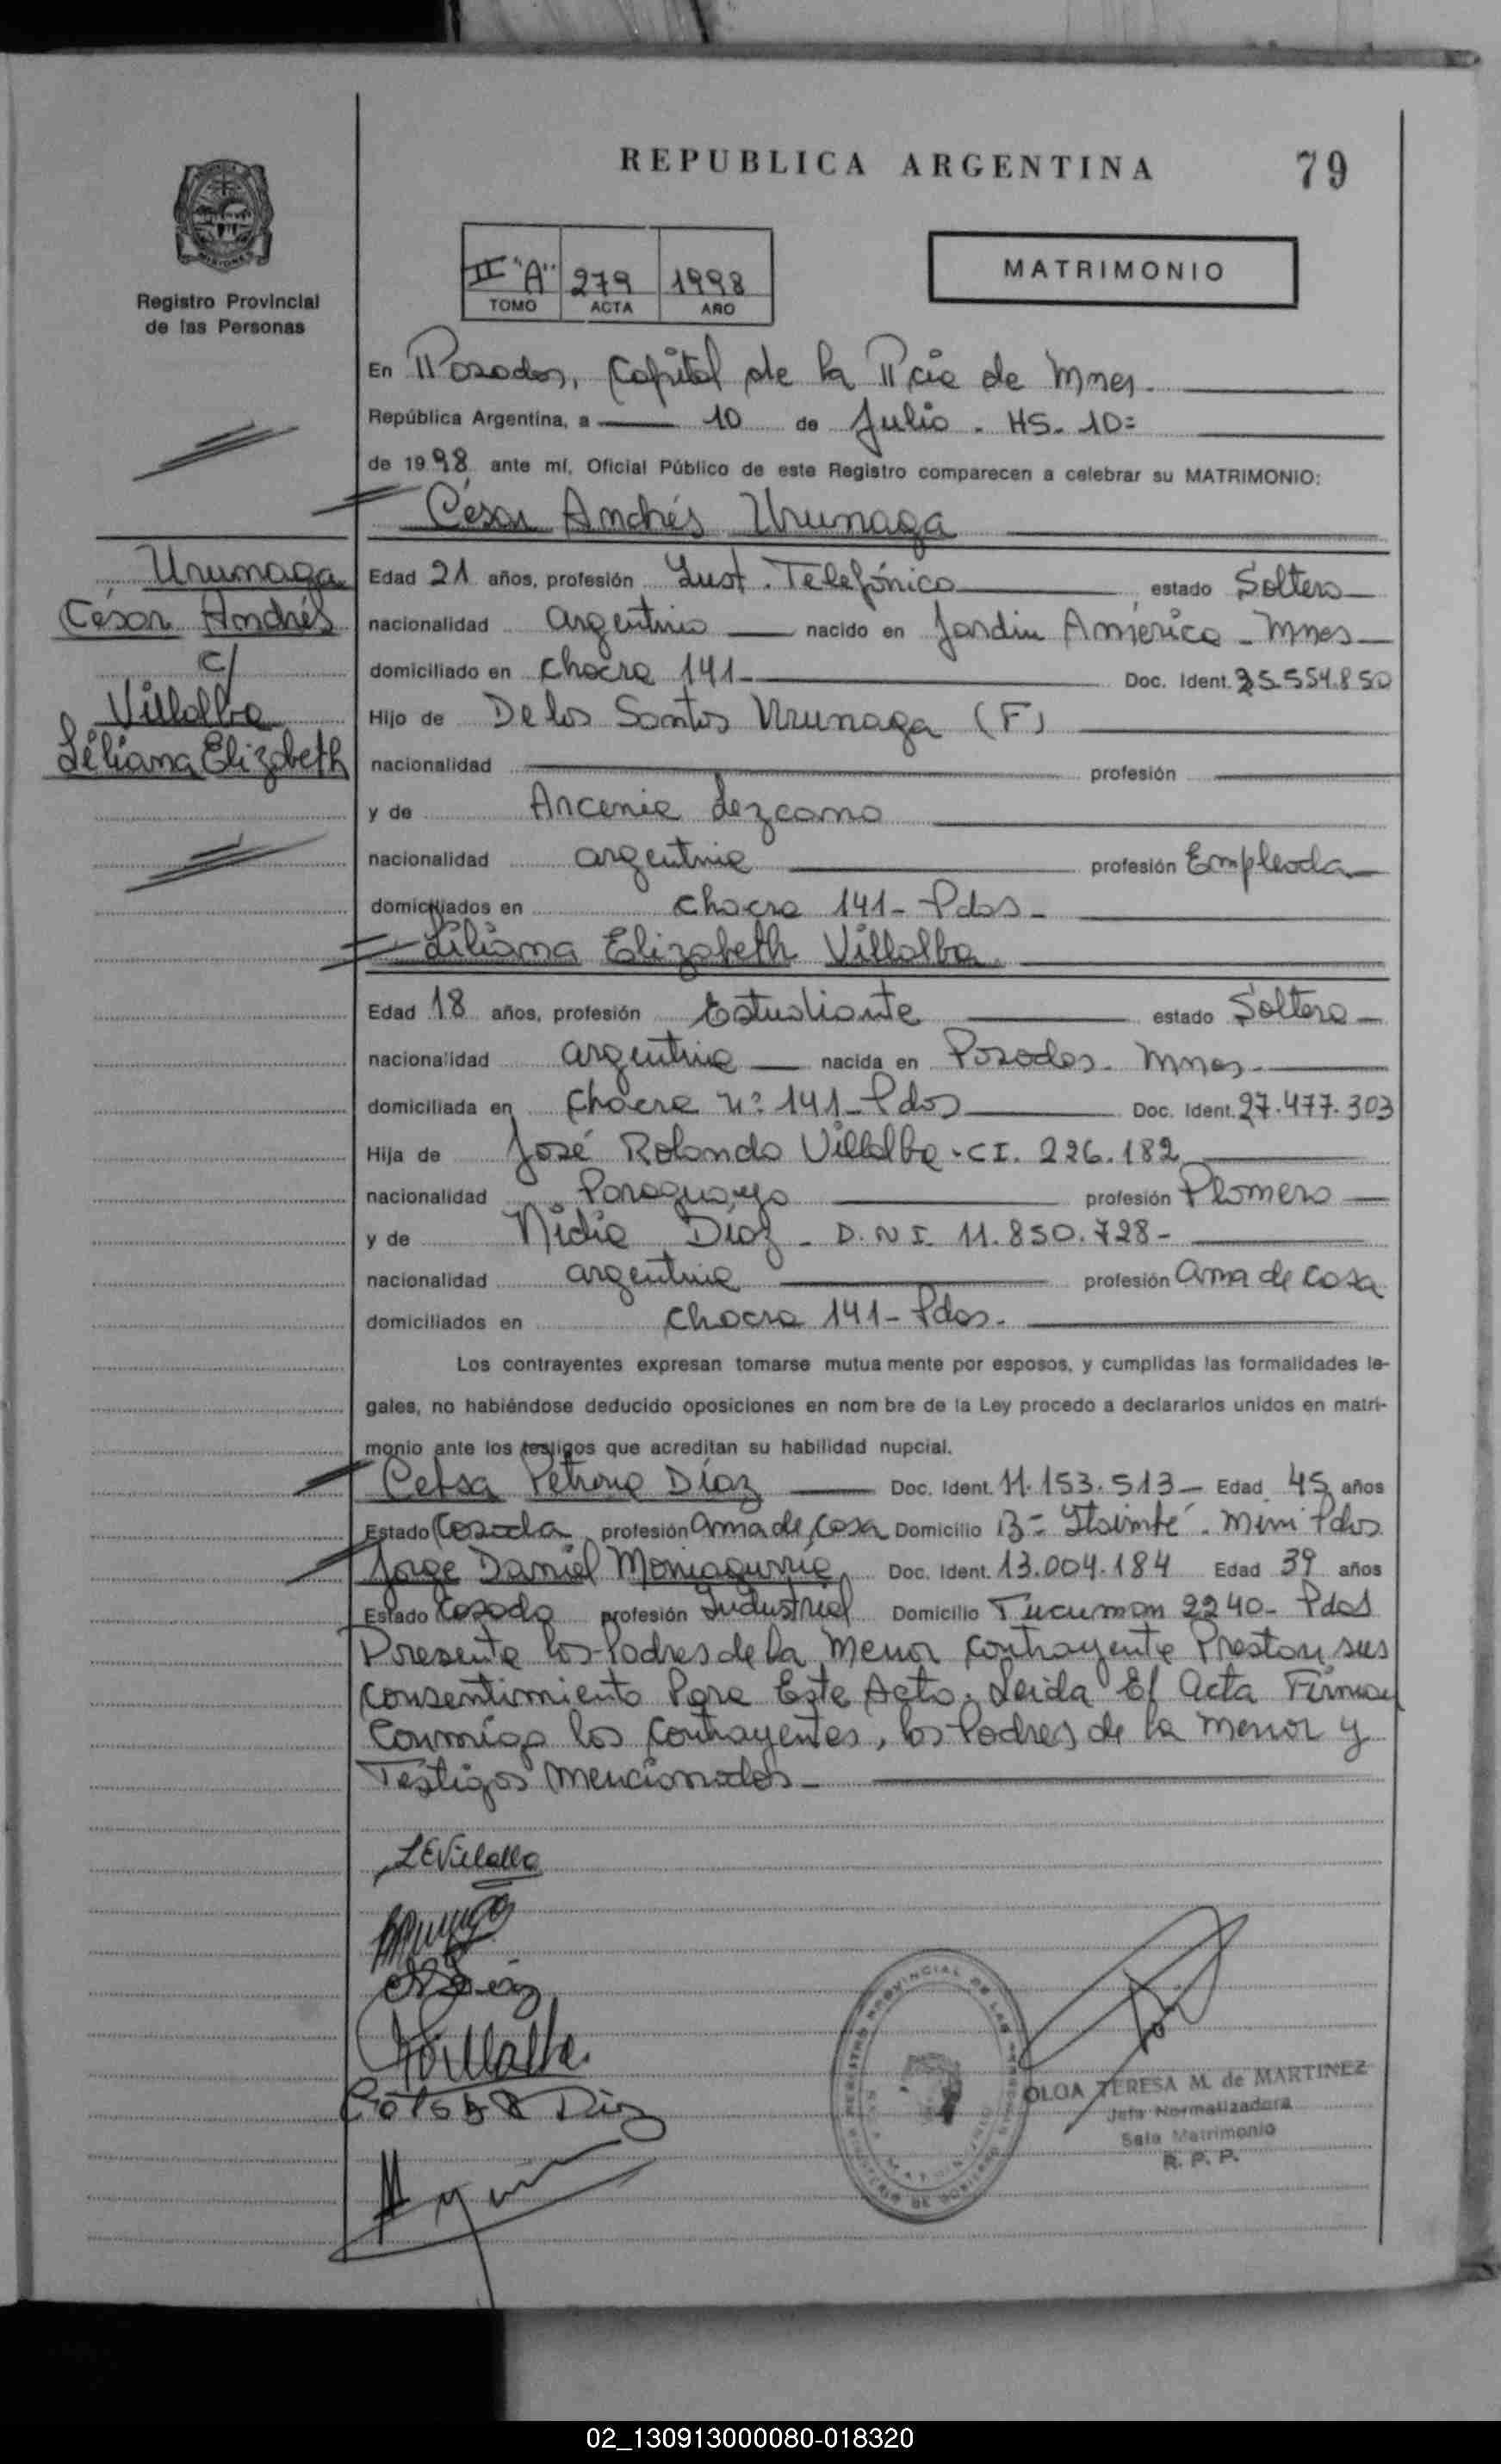 REPUBLICA ARGENTINA
79
II "A" 279 1998
TOMO ACTA AÑO
MATRIMONIO
Registro Provincial
de las Personas
En Posadas, Capital de la Pcia de Mnes.
República Argentina, a 10 de Julio . HS. 10=
de 1998 ante mí, Oficial Público de este Registro comparecen a celebrar su MATRIMONIO:
César Andrés Urunaga
Urunaga
César Andrés
c/
Villalba
Liliana Elizabeth
Edad 21 años, profesión Inst. Telefónico estado Soltero
nacionalidad argentino nacido en Jardin América - Mnes
domiciliado en Chacra 141 Doc. Ident. 25.554.850
Hijo de De los Santos Urunaga (F)
nacionalidad profesión
y de Arcenia Lezcano
nacionalidad argentina profesión Empleada
domiciliados en Chacra 141- Pdas-
Liliana Elizabeth Villalba
Edad 18 años, profesión Estudiante estado Soltera
nacionalidad argentina nacida en Posadas. Mnes.
domiciliada en Chacra nº 141- Pdas Doc. Ident. 27.477.303
Hija de José Rolando Villalba - CI. 226.182
nacionalidad Paraguayo profesión Plomero
y de Nidia Díaz - D.N.I. 11.850.728-
nacionalidad argentina profesión ama de casa
domiciliados en Chacra 141- Pdas.
Los contrayentes expresan tomarse mutua mente por esposos, y cumplidas las formalidades le-
gales, no habiéndose deducido oposiciones en nom bre de la Ley procedo a declararlos unidos en matri-
monio ante los testigos que acreditan su habilidad nupcial.
Celsa Petrona Díaz Doc. Ident. 11.153.513- Edad 45 años
Estado Casada profesión ama de casa Domicilio Bº Itaimbé . Mini Pdas
Jorge Daniel Doc. Ident. 13.004.184 Edad 39 años
Estado Casado profesión Industrial Domicilio Tucuman 2240- Pdas
Presente los Padres de la menor contrayente Prestan sus
consentimiento Para Este Acto. Leida El acta Firman
Conmigo los contrayentes, los Padres de la menor y
Testigos mencionados-
LEVillalba
Villalba
Celsa P Diaz
REGISTRO PROVINCIAL DE LAS PERSONAS
OLGA TERESA M. de MARTINEZ
Jefa Normalizadora
Sala Matrimonio
R. P. P.
02_130913000080-018320